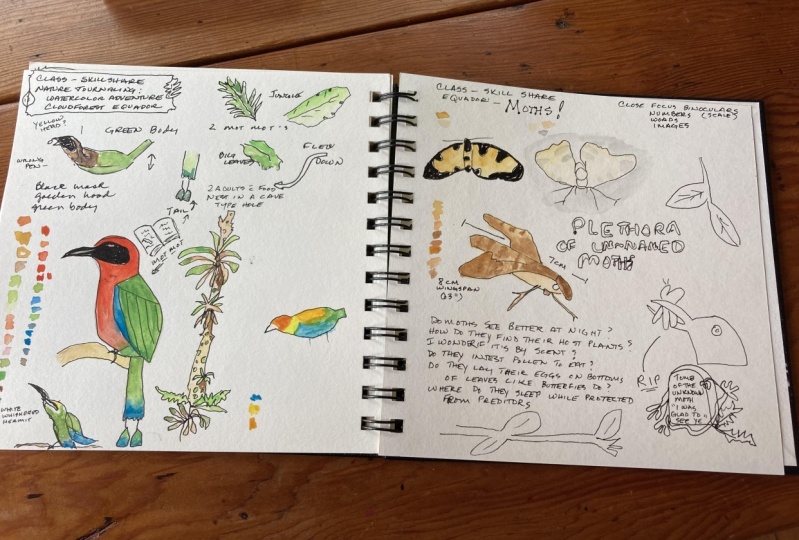 CLASS - SKILLSHARE
NATURE JOURNALING:
WATERCOLOR ADVENTURE
CLOUDFOREST EQUADOR
YELLOW
HEAD?
GREEN BODY
WRONG
PEN -
Black mask
golden hood
green body
JUNGLE
2 MOT MOT'S
BIG
LEAVES
FLEW
DOWN
2 ADULTS FOOD
NEST IN A CAVE
TYPE HOLE
TAIL
MOT MOT
WHITE
WHISKERED
HERMIT
CLASS - SKILL SHARE
EQUADOR - MOTHS!
CLOSE FOCUS BINOCULARS
NUMBERS (SCALE)
WORDS
IMAGES
PLETHORA
OF UNNAMED
MOTHS
7CM
8CM
WINGSPAN
(3")
DO MOTHS SEE BETTER AT NIGHT?
HOW DO THEY FIND THEIR HOST PLANTS?
I WONDER IF IT'S BY SCENT?
DO THEY INJEST POLLEN TO EAT?
DO THEY LAY THEIR EGGS ON BOTTOMS
OF LEAVES LIKE BUTTERFIES DO?
WHERE DO THEY SLEEP WHILE PROTECTED
FROM PREDITORS
RIP
TOMB
OF THE
UNKNOWN
MOTH
"I WAS
GLAD TO
SEE YE